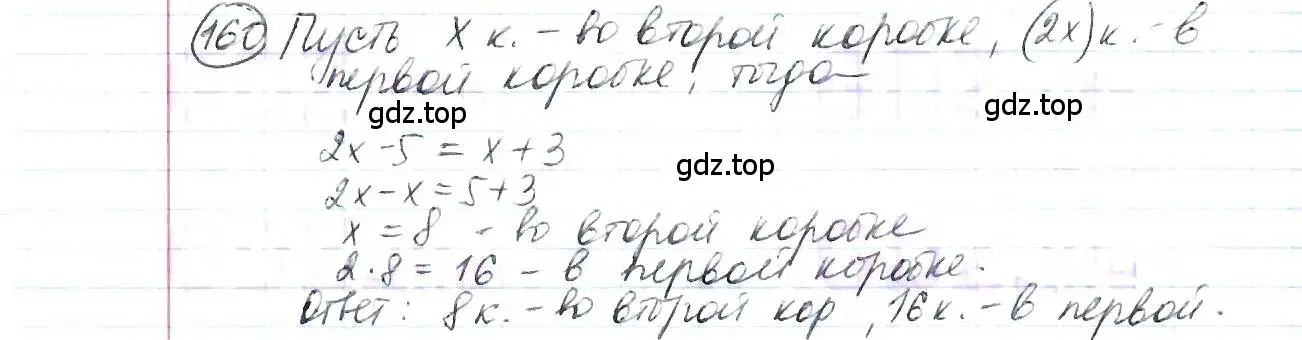 160 Пусть х к. - во второй коробке, (2х) к. - в
первой коробке, тогда
gdz.top
2х - 5 = х + 3
gdz.top
2х - х = 5 + 3
х = 8 - во второй коробке
2 · 8 = 16 - в первой коробке.
gdz.top
Ответ: 8 к. - во второй кор, 16 к. - в первой.